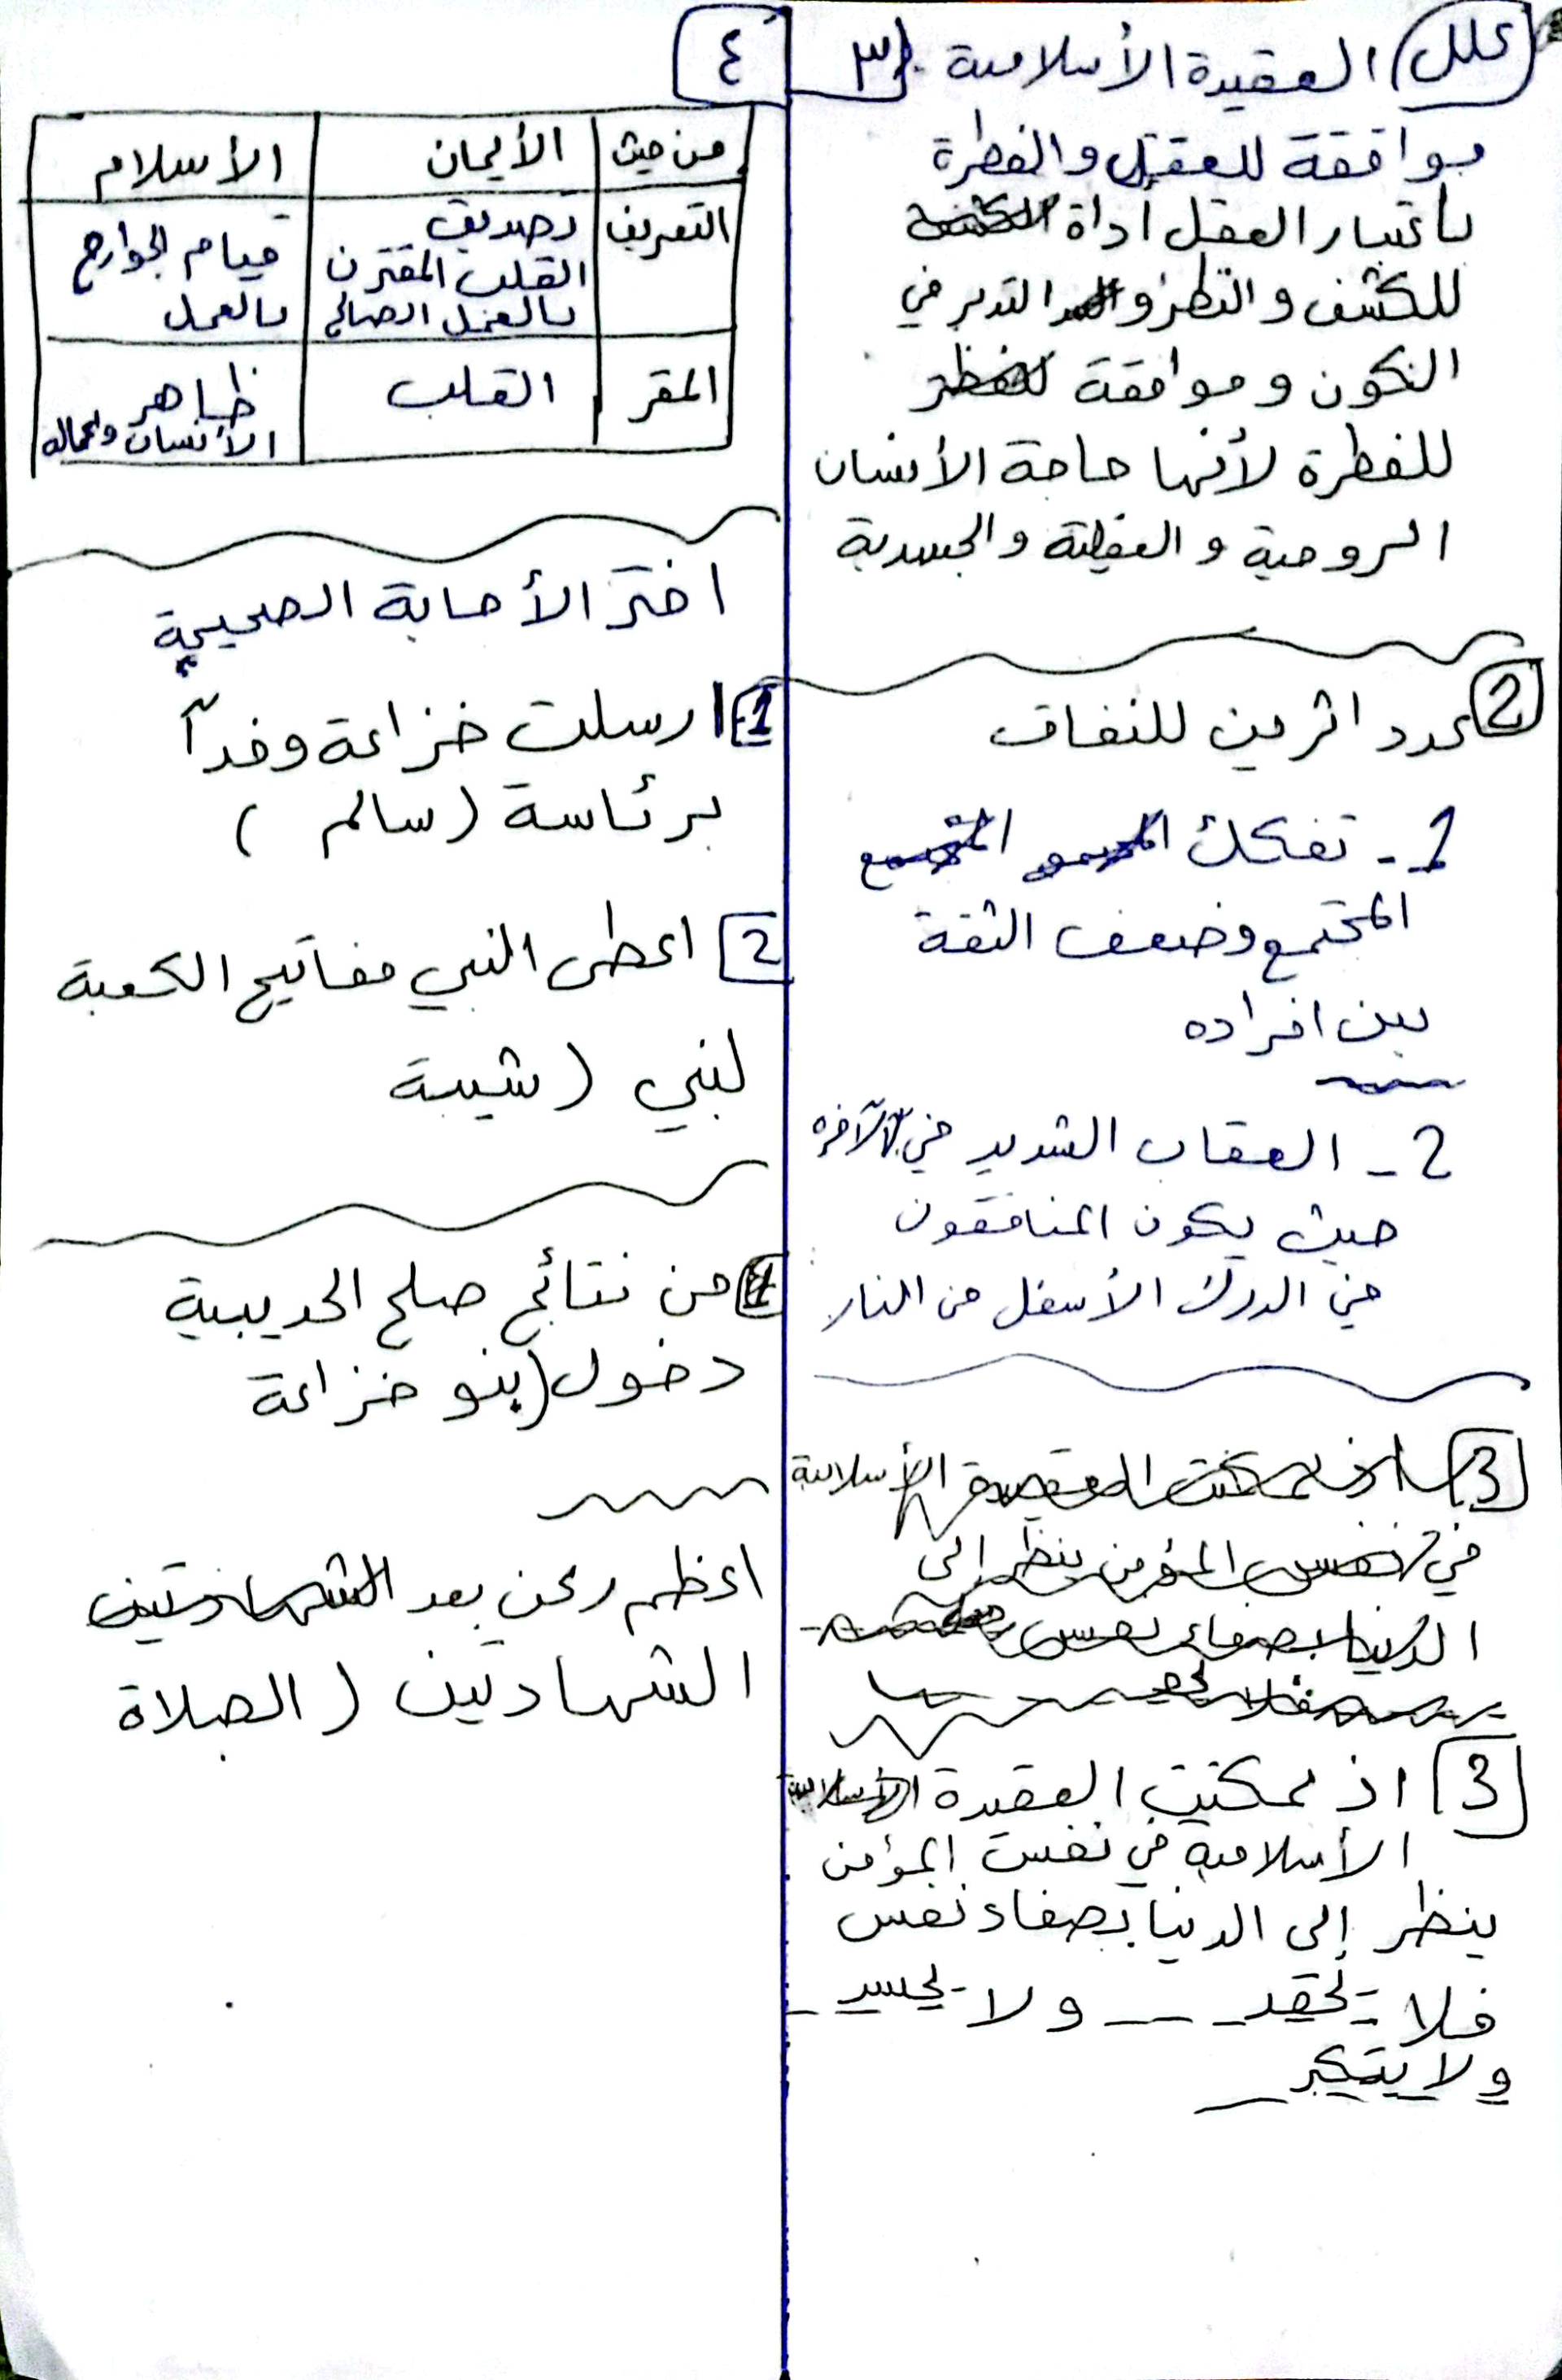 علل) العقيدة الأسلامية ٣
موافقة للعقل والفطرة
بأعتبار العقل أداة
للكشف والنظر و التدبر في
الكون وموافقة
للفطرة لأنها حاجة الأنسان
الروحية و العقلية والجسدية
2 عدد اثرين للنفاق
1- تفكك
المجتمع وضعف الثقة
بين افراده
2- العقاب الشديد في الآخره
حيث يكون المنافقون
في الدرك الأسفل من النار
3 اذ تمكنت العقيدة الأسلامية
في نفس المؤمن ينظر إلى
الدنيا بصفاء نفس
فلا يحقد
3 اذ تمكنت العقيدة
الأسلامية في نفس المؤمن
ينظر إلى الدنيا بصفاء نفس
فلا يحقد ولا يحسد
ولا يتكبر
٤
من حيث الأيمان الأسلام
التعريف تصديق القلب المقترن بالعمل الصالح قيام الجوارح بالعمل
المقر القلب ظاهر الأنسان واعماله
اختر الأجابة الصحيحة
1 ارسلت خزاعة وفداً
برئاسة (سالم )
2 اعطى النبي مفاتيح الكعبة
لبني (شيبة
1 من نتائج صلح الحديبية
دخول (بنو خزاعة
اعظم ركن بعد الشهادتين
الشهادتين (الصلاة